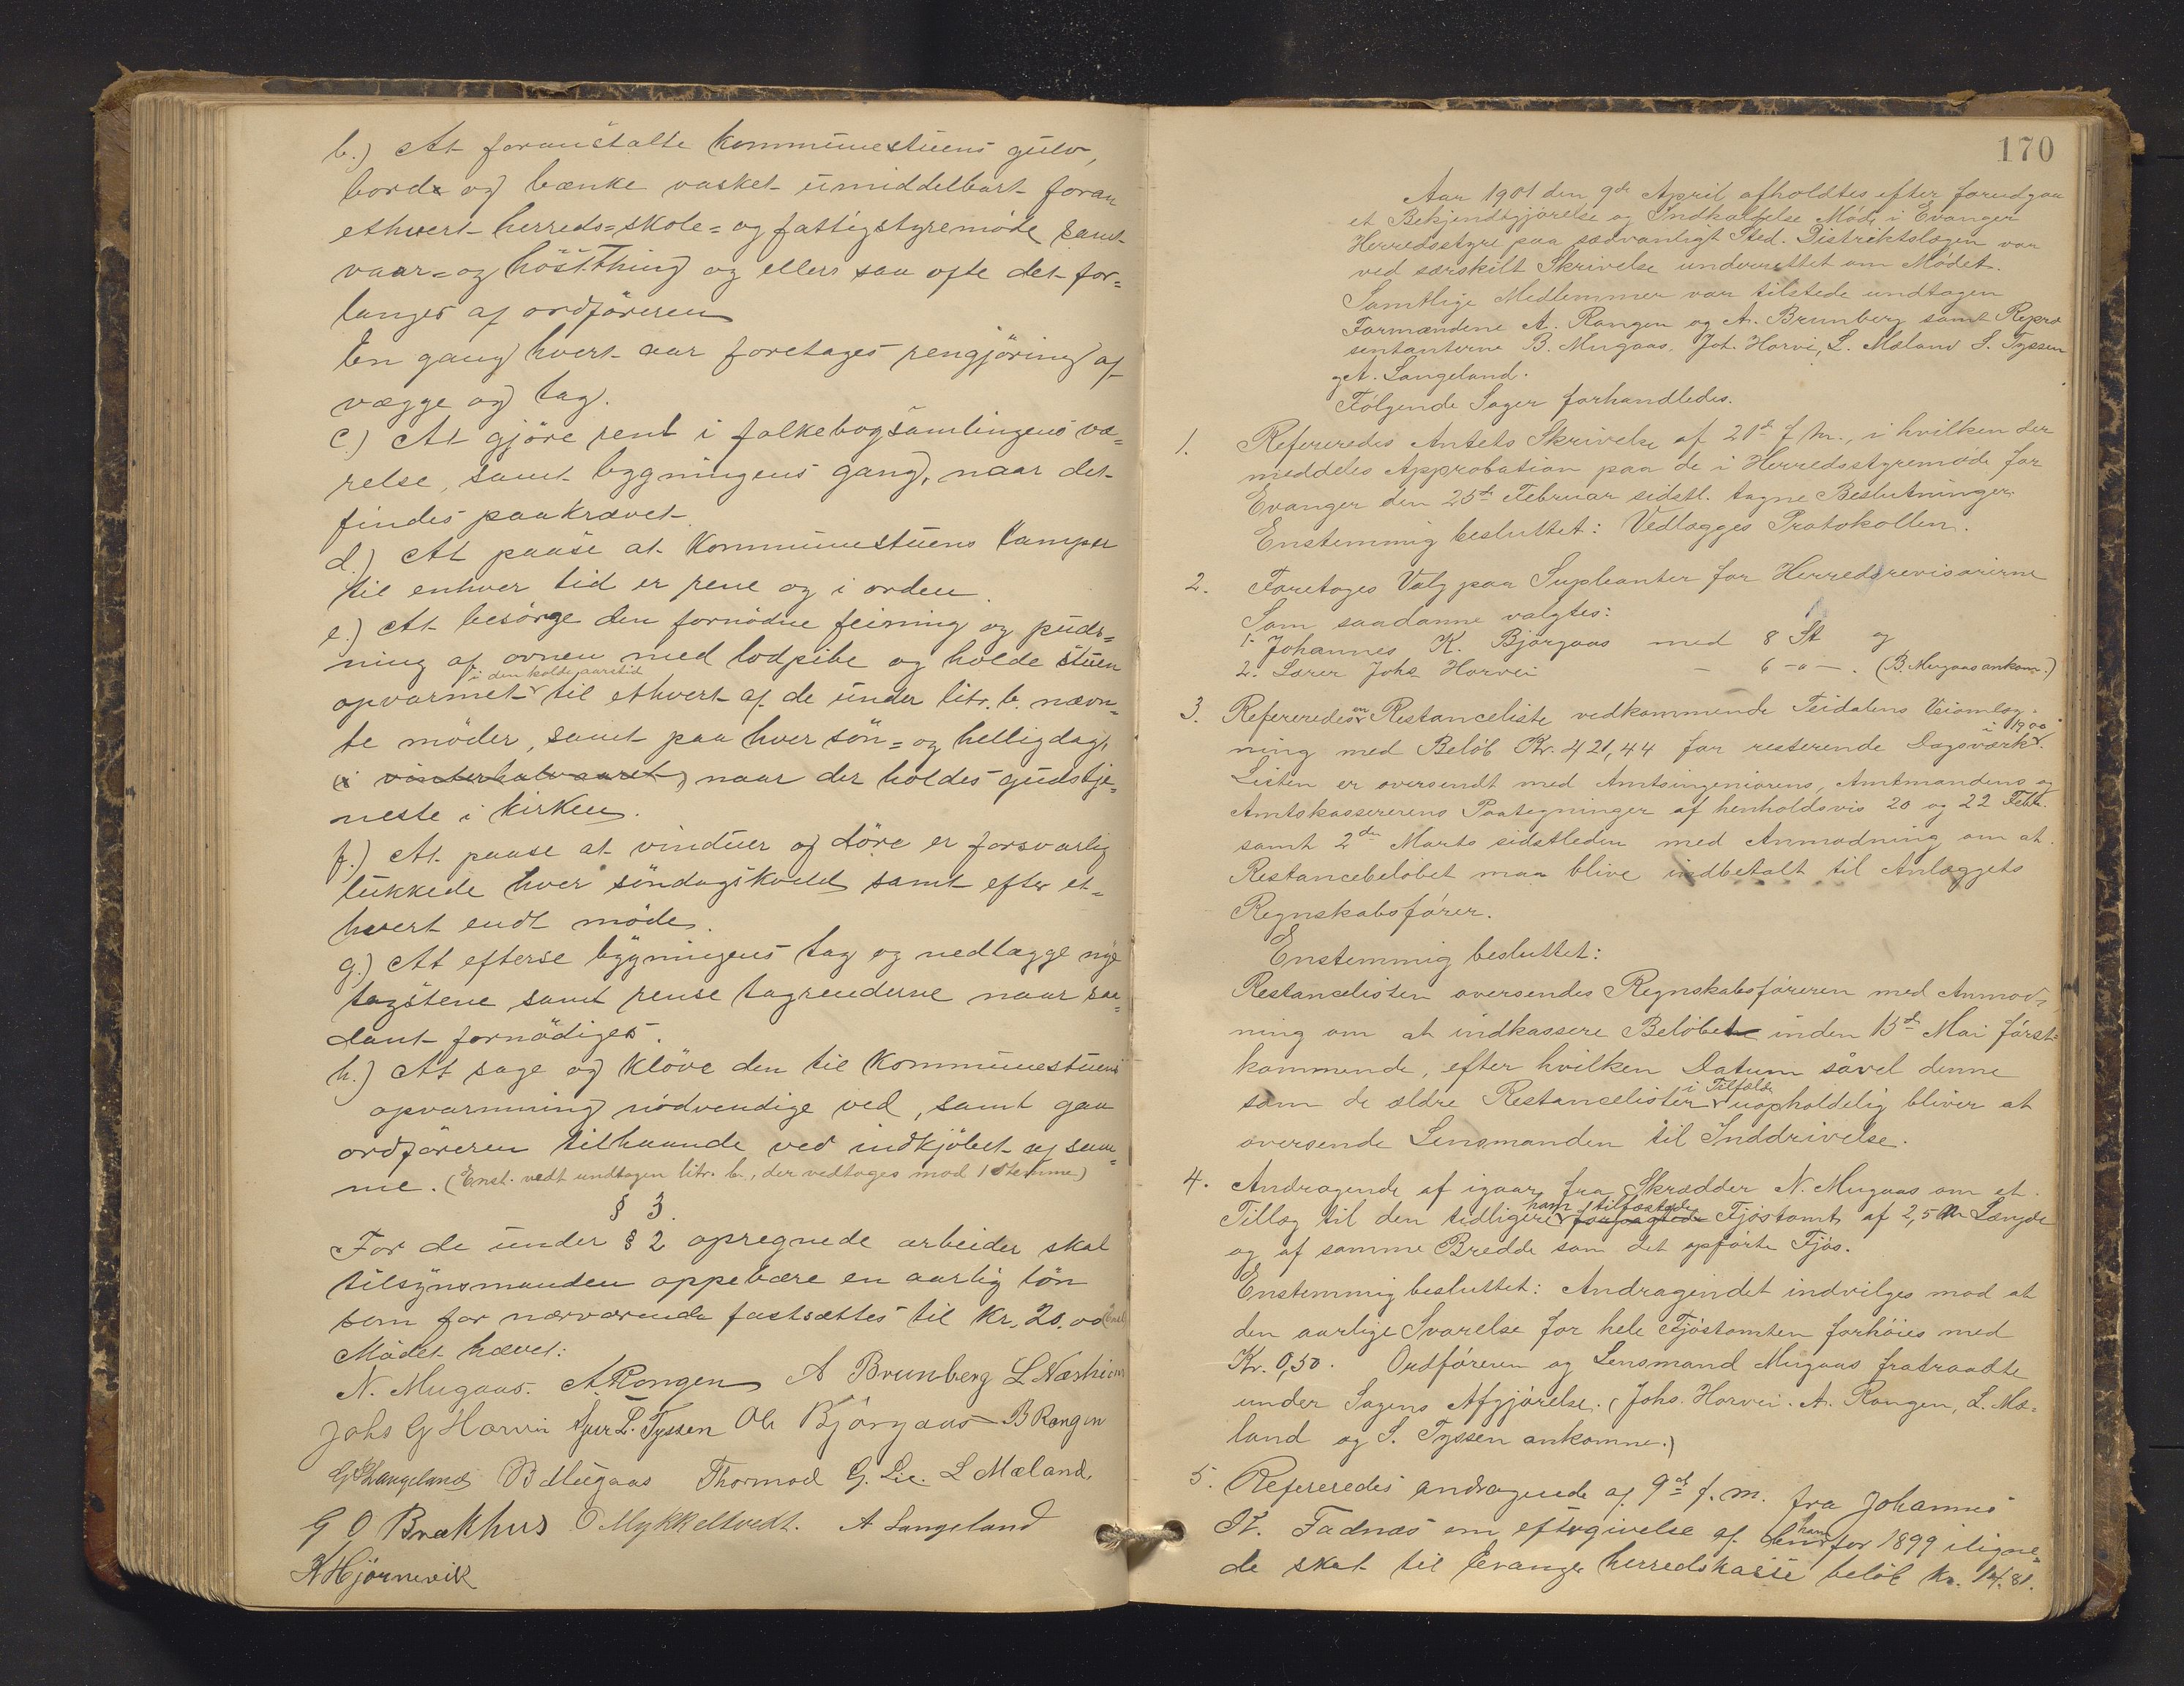 b.) At foranstalte kommunestuens gulv,
borde og bænke vasket umiddelbart foran
ethvert herreds-skole- og fattigstyremöde samt
vaar- og höstthing og ellers saa ofte det for-
langes af ordföreren
En gang hvert aar foretages rengjöring af
vægge og tag.
c.) At gjöre rent i folkebogsamlingens væ-
relse, samt bygningens gang, naar det
findes paakrævet.
d.) At paase at kommunestuens lamper
til enhver tid er rene og i orden.
e.) At besörge den fornödne feining og puds-
ning af ovnen med lodpibe og holde stuen
i den kolde aarstid
opvarmet til ethvert af de under litr. b. nævn-
te möder, samt paa hver sön- og helligdag,
(i vinterhalvaaret) naar der holdes gudstje-
neste i kirken.
f.) At paase at vinduer og döre er forsvarlig
lukkede hver söndagskveld samt efter et-
hvert endt möde.
g.) At efterse bygningens tag og nedlægge nye
tagstene samt rense tagrenderne naar saa-
dant fornödiges.
h.) At sage og klöve den til kommunestuens
opvarmning nödvendige ved, samt gaa
ordföreren tilhaande ved indkjöbet af sam-
me. (Enst. vedt undtagen litr. b., der vedtoges mod 1 stemme)
§ 3.
For de under § 2 opregnede arbeider skal
tilsynsmanden oppebære en aarlig lön
som for nærværende fastsættes til kr. 20.00 (Enst)
Mödet hævet:
N. Mugaas. A. Rongen A Brunberg L Næsheim
Johs G Horvei Sjur L. Tyssen Ole Björgaas B Rongen
G Langeland B Mugaas Thormod G. Lie. L Mæland,
G O Brækhus O Mykkeltvedt. A Langeland
K Hjörnevik
170
Aar 1901 den 9de April afholdtes efter forudgaa
et Bekjendtgjörelse og Indkaldelse Möde i Evanger
Herredsstyre paa sædvanligt Sted. Distriktslægen var
ved særskilt Skrivelse underrettet om Mödet.
Samtlige Medlemmer var tilstede undtagen
Formændene A. Rongen og A. Brunberg samt Repræ
sentanterne B. Mugaas, Joh. Horvi, L. Mæland S. Tyssen
og A. Langeland.
Fölgende Sager forhandledes.
1. Refereredes Amtets Skrivelse af 21de f. M., i hvilken der
meddeles Approbation paa de i Herredsstyremöde for
Evanger den 25de Februar sidstl. tagne Beslutninger.
Enstemmig besluttet: Vedlægges Protokollen.
2. Foretoges Valg paa Supleanter for Herredsrevisorerne
Som saadanne valgtes:
1. Johannes K. Björgaas med 8 St og
2. Lærer Johs Horvei — 6 -"- . (B. Mugaas ankom.)
3. Refereredes en Restanceliste vedkommende Teidalens Veiomlæg-
i 1900
ning med Belöb Kr. 421,44 for resterende Dagsværk.
Listen er oversendt med Amtsingeniörens, Amtmandens og
Amtskassererens Paategninger af henholdsvis 20 og 22 Febr.
samt 2den Marts sidstleden med Anmodning om at
Restancebelöbet maa blive indbetalt til Anlæggets
Regnskabsförer.
Enstemmig besluttet:
Restancelisten oversendes Regnskabsföreren med Anmod-
ning om at indkassere Belöbet inden 15de Mai först-
kommende, efter hvilken Datum såvel denne
i Tilfælde
som de ældre Restancelister uopholdelig bliver at
oversende Lensmanden til Inddrivelse.
4. Andragende af igaar fra Skrædder N. Mugaas om et
ham tilfæstede
Tillæg til den tidligere Fjöstomt af 2,5 M Længde
og af samme Bredde som det opförte Fjös.
Enstemmig besluttet: Andragendet indvilges mod at
den aarlige Svarelse for hele Fjöstomten forhöies med
Kr. 0,50. Ordföreren og Lensmand Mugaas fratraadte
under Sagens Afgjörelse. (Johs. Horvei. A. Rongen, L. Mæ-
land og S. Tyssen ankomne.)
5. Refereredes andragende af 9de f. m. fra Johannes
K. Fadnæs om eftergivelse af den ham for 1899 iligne-
de skat til Evanger herredskasse beløb kr. 14.81.